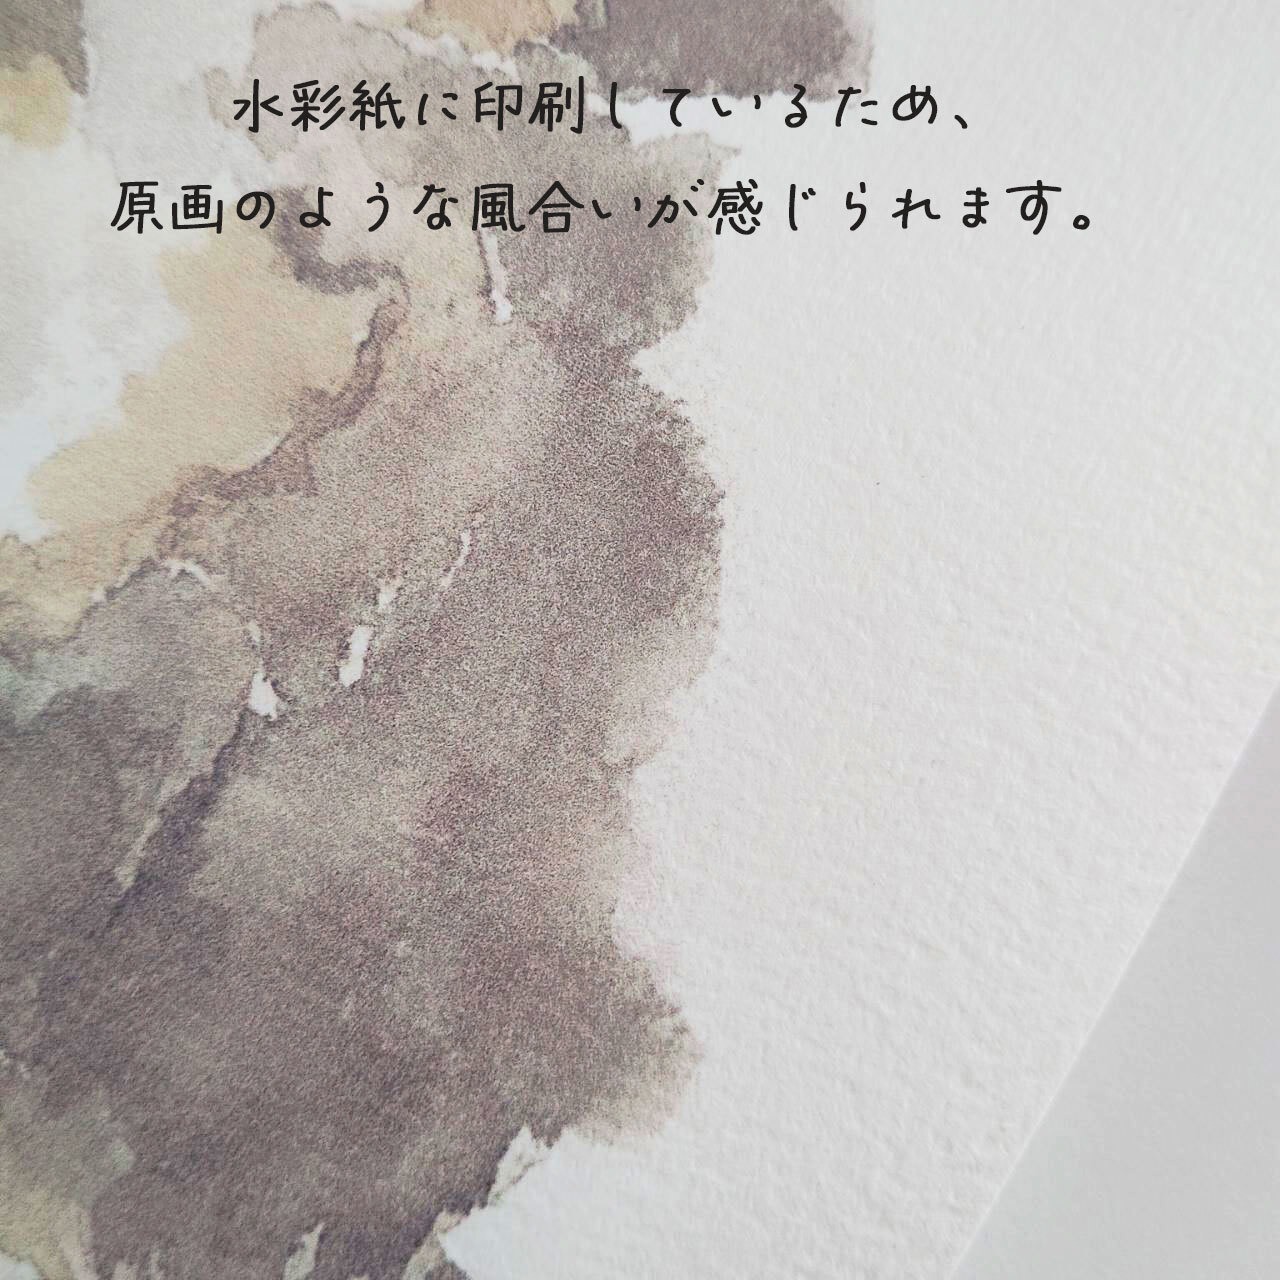 水彩紙に印刷しているため、
原画のような風合いが感じられます。